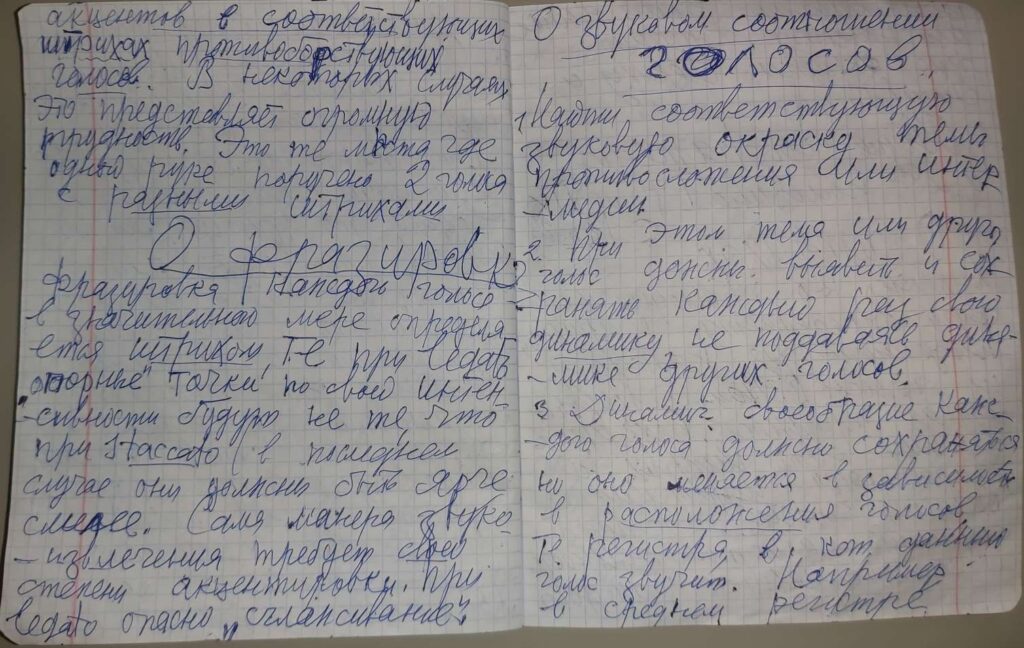 акцентов в соответствующих
штрихах противоборствующих
голосов. В некоторых случаях
Это представляет огромную
трудность. Это те места где
одной руке поручено 2 голоса
с разными штрихами
О фразировке
фразировка каждого голоса
в значительной мере определя
ется штрихом, Т.Е при legato
"опорные" точки по своей интен
-сивности будут не те, что
при Staccato (в последнем
случае они должны быть ярче
смелее. Сама манера звуко
-извлечения требует своей
степени акцентировки. При
legato опасно "сглаживание"
О звуковом соотношении
ГОЛОСОВ
1. Найти соответствующую
звуковую окраску темы
противосложения или интер
-медии
2. При этом тема или другой
голос должны выявить и сох
-ранять каждый раз свою
динамику, не поддаваясь дина
-мике других голосов.
3 Динамич. своеобразие каж
-дого голоса должно сохраняться
но оно меняется в зависимости
в расположения голосов
Те регистра в кот. данный
голос звучит. Например
в среднем регистре